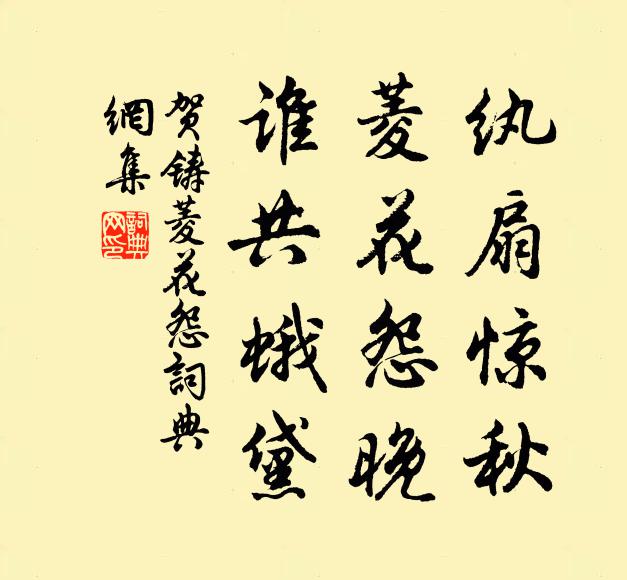 纨扇惊秋
菱花怨晚
谁共蛾黛
贺铸菱花怨詞典
網集
詞典网印